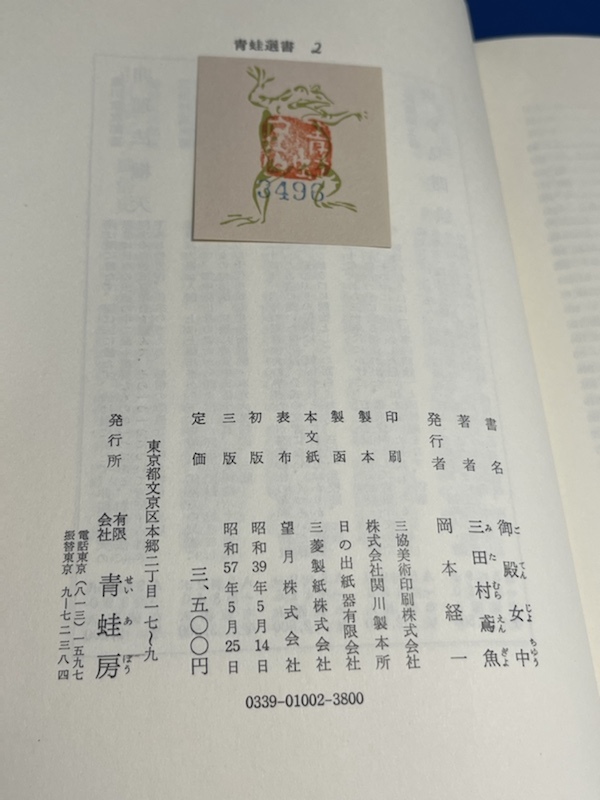 青蛙選書 2
3496
書名 御殿女中
ごてんじょちゅう
著者 三田村鳶魚
みたむらえんぎょ
発行者 岡本経一
印刷 三協美術印刷株式会社
製本 株式会社関川製本所
製函 日の出紙器有限会社
本文紙 三菱製紙株式会社
表布 望月株式会社
初版 昭和39年5月14日
三版 昭和57年5月25日
定価 三、五〇〇円
東京都文京区本郷二丁目一七〜九
発行所 有限会社 青蛙房
せいあぼう
電話東京(八一三)一五九七
振替東京 九—七二三八四
0339-01002-3800